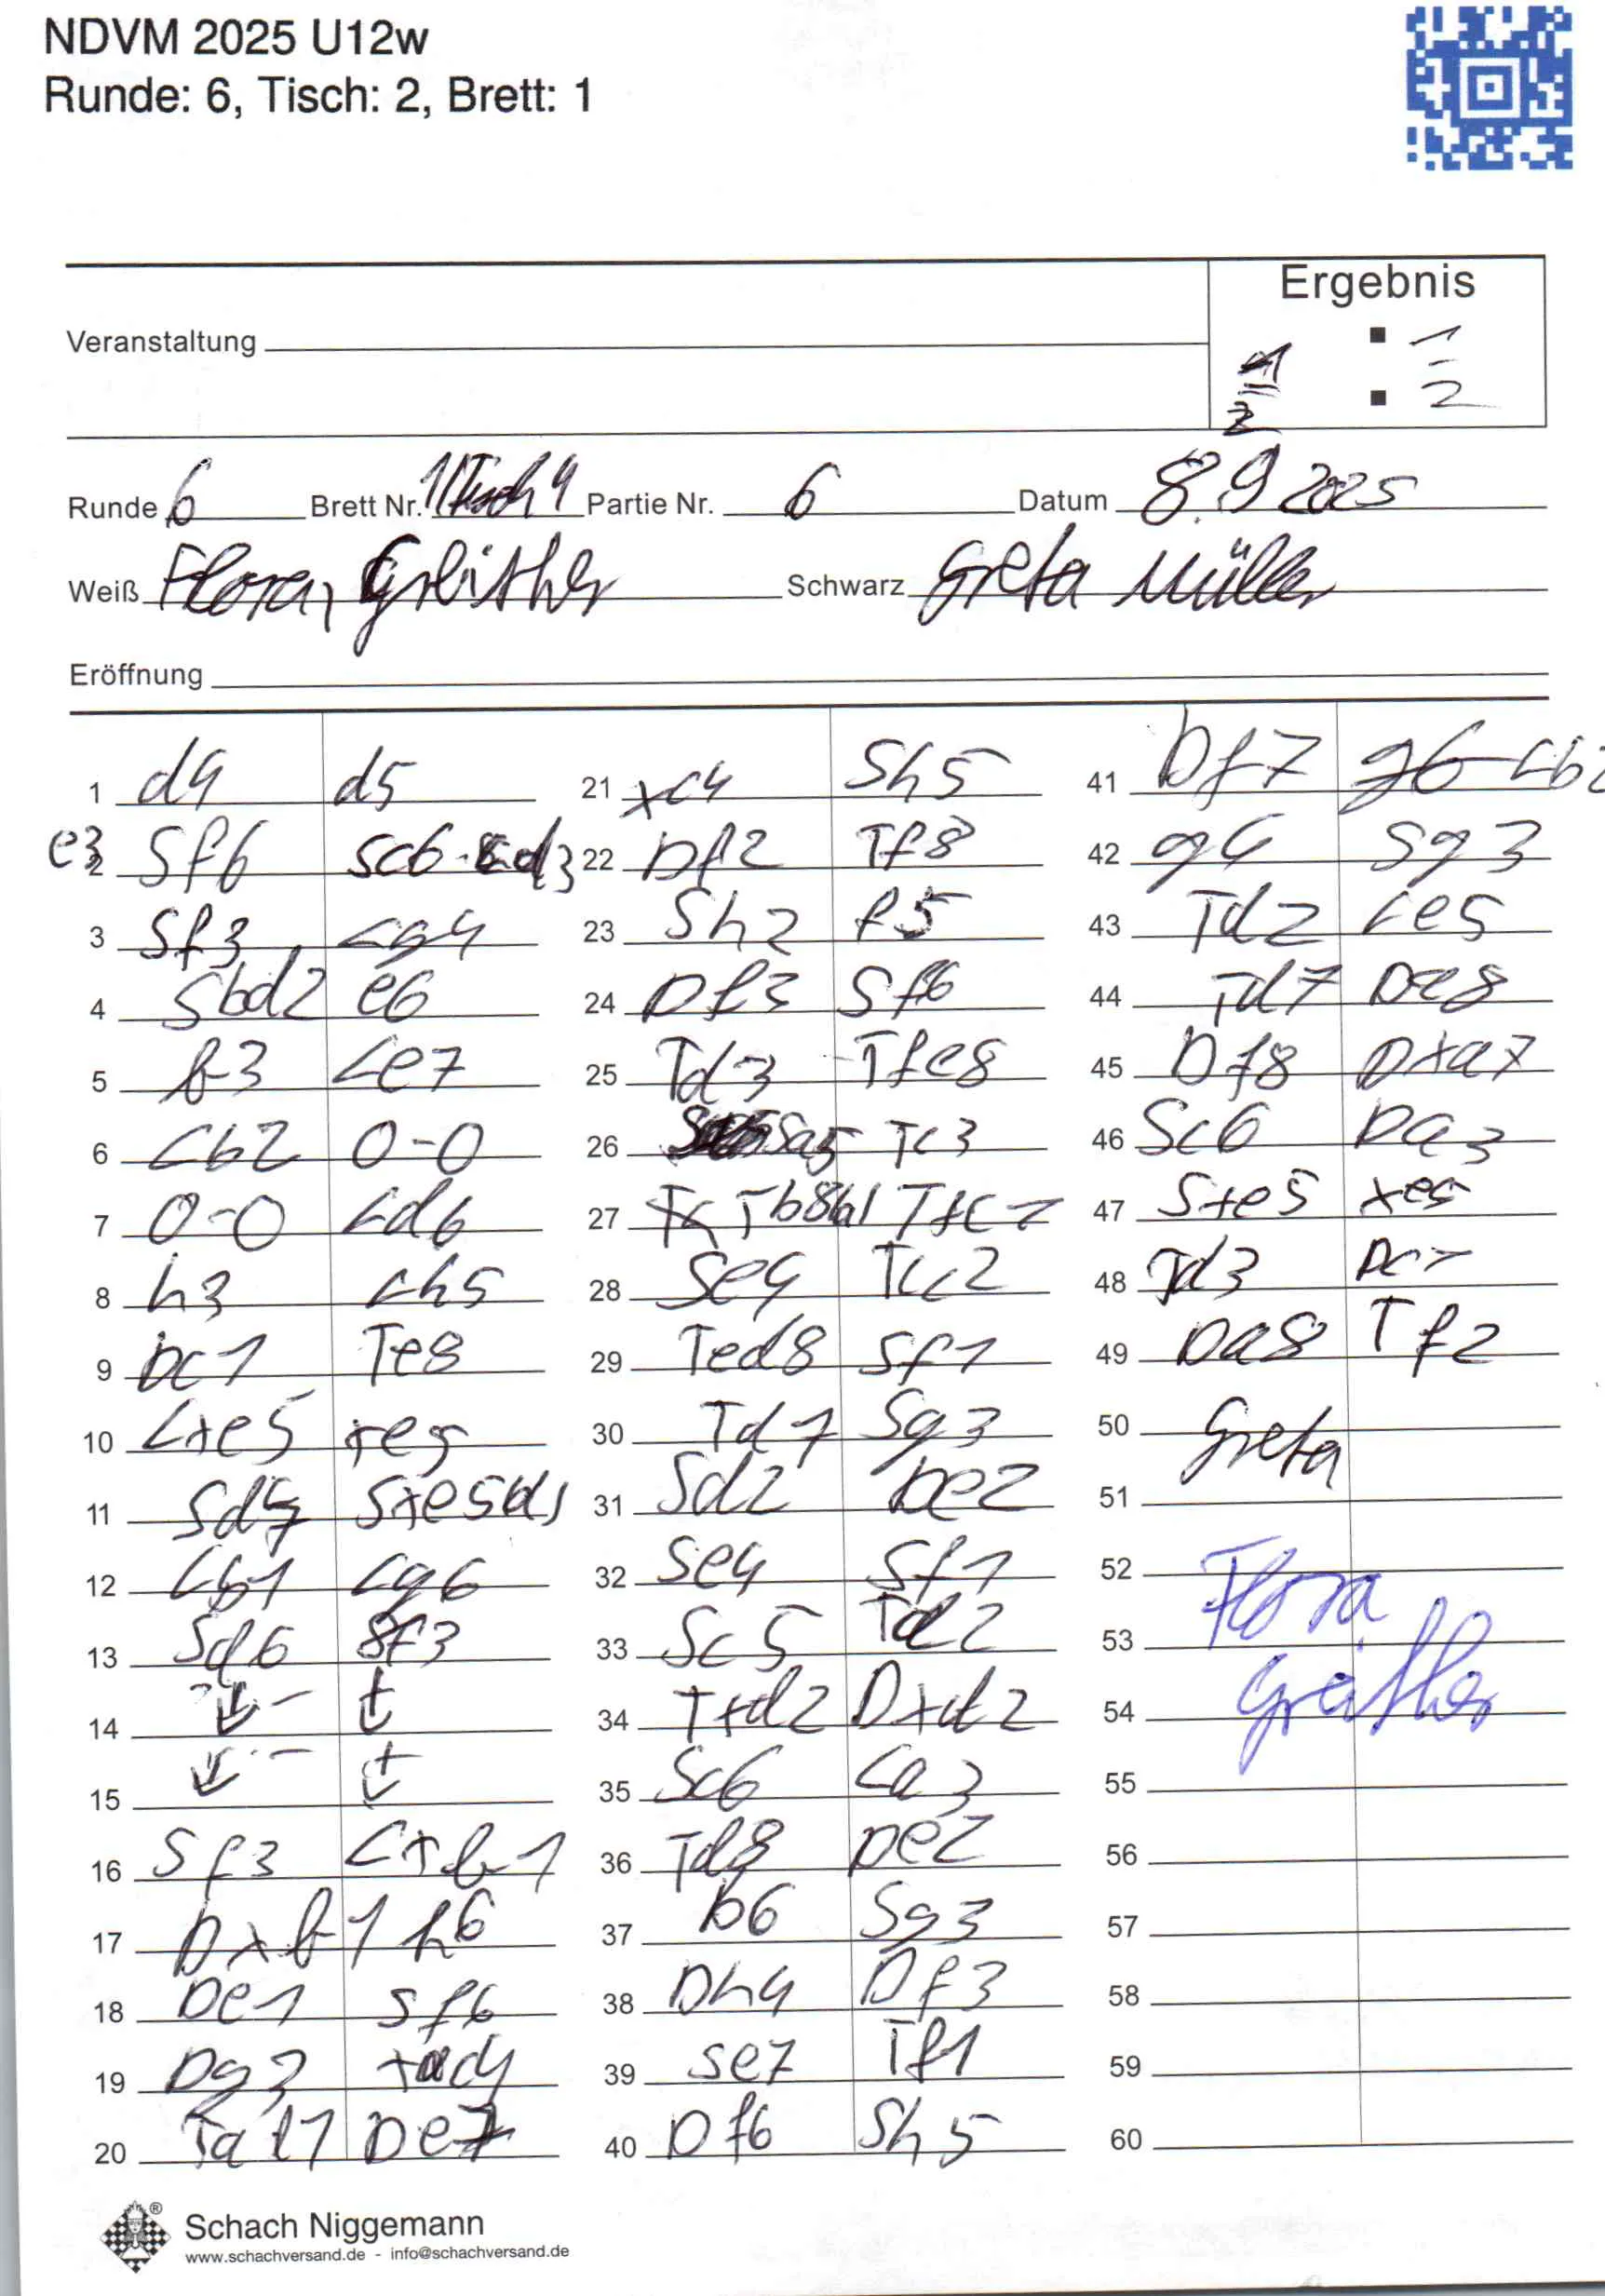 NDVM 2025 U12w
Runde: 6, Tisch: 2, Brett: 1
Ergebnis
Veranstaltung
: 1
: 2
Runde 6 Brett Nr. 1/Tisch 4 Partie Nr. 6 Datum 8.9 2025
Weiß Flora Gräther Schwarz Greta Müller
Eröffnung
1 d4 d5
e3
2 Sf6 Sc6 Ld3
3 Sf3 Lg4
4 Sbd2 e6
5 b3 Le7
6 Lb2 0-0
7 0-0 Ld6
8 h3 Lh5
9 Dc1 Te8
10 Lxe5 xe5
11 Sxe5
12 Lb1 Lg6
13 Sd6 Sf3
14
15
16 Sf3 Lxb1
17 Dxb1 h6
18 De1 Sf6
19 Dg3 xc4
20 Tad1 De7
21 xc4 Sh5
22 Df2 Tf8
23 Sh2 f5
24 Df3 Sf6
25 Td3 Tfe8
26 Sa5 Tc3
27 Tb8 Tfc7
28 Se4 Tcc2
29 Ted8 Sf1
30 Td7 Sg3
31 Sd2 De2
32 Se4 Sf1
33 Sc5 Td2
34 Txd2 Dxd2
35 Sc6 La3
36 Td8 De2
37 b6 Sg3
38 Dh4 Df3
39 Se7 Tf1
40 Df6 Sh5
41 Df7 g6 Lb2
42 g4 Sg3
43 Td2 Le5
44 Td7 De8
45 Df8 Dxa7
46 Sc6 Da3
47 Sxe5 xe5
48 Td3 Dc7
49 Da8 Tf2
50 Greta
51
52 Flora
53
54 Gräther
55
56
57
58
59
60
Schach Niggemann
www.schachversand.de - info@schachversand.de